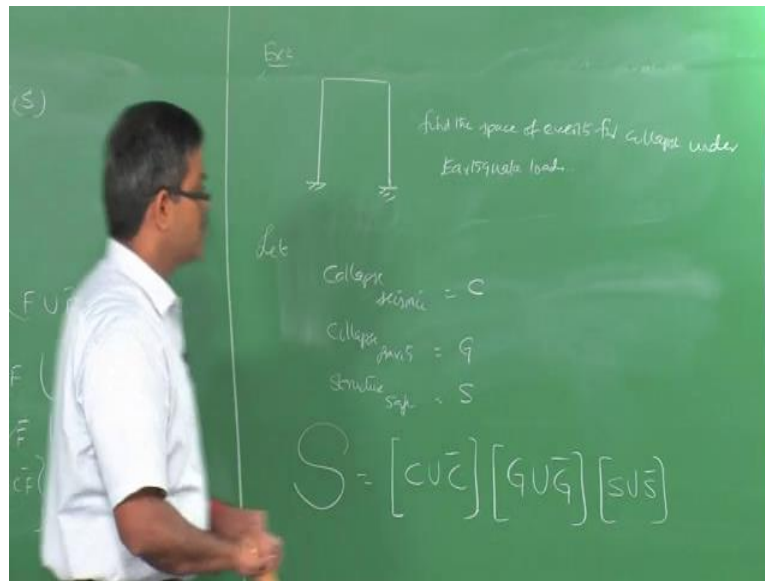 (S)
F ∪
F (
F̄
C̄F̄)
Ex:
find the space of events for collapse under
Earthquake load.
Let
Collapse seismic = C
Collapse gravity = G
Structure safe = S
S = [C∪C̄] [G∪Ḡ] [S∪S̄]